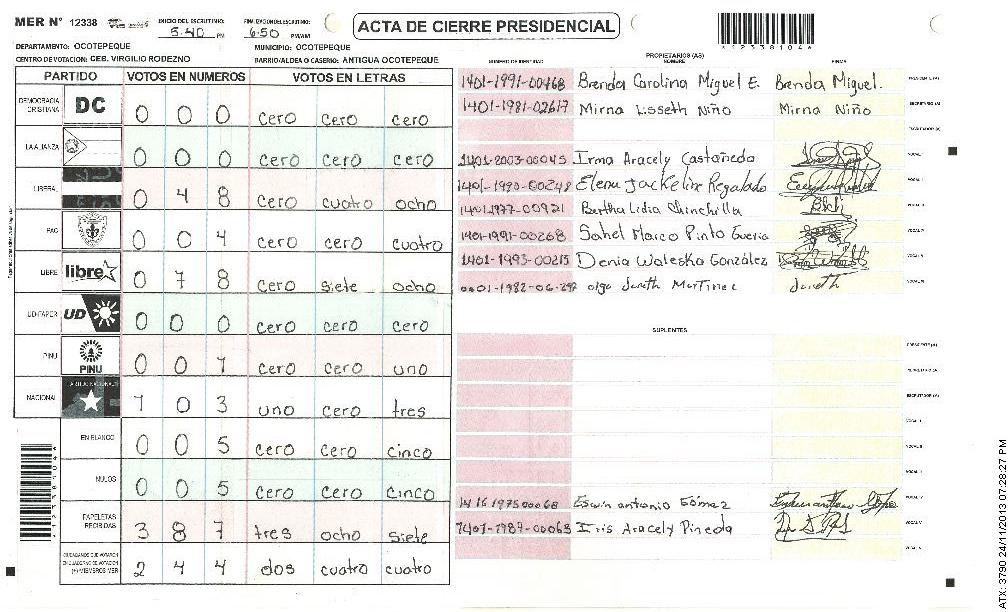 MER N° 12338
INICIO DEL ESCRUTINIO: 5.40 PM
FINALIZACION DEL ESCRUTINIO: 6.50 PM/AM
ACTA DE CIERRE PRESIDENCIAL
DEPARTAMENTO: OCOTEPEQUE
MUNICIPIO: OCOTEPEQUE
CENTRO DE VOTACION: CEB. VIRGILIO RODEZNO
BARRIO/ALDEA O CASERIO: ANTIGUA OCOTEPEQUE
PARTIDO VOTOS EN NUMEROS VOTOS EN LETRAS
DEMOCRACIA CRISTIANA DC 0 0 0 cero cero cero
LA ALIANZA 0 0 0 cero cero cero
LIBERAL 0 4 8 cero cuatro ocho
PAC 0 0 4 cero cero cuatro
LIBRE libre 0 7 8 cero siete ocho
UD-FAPER UD 0 0 0 cero cero cero
PINU PINU 0 0 1 cero cero uno
NACIONAL 1 0 3 uno cero tres
EN BLANCO 0 0 5 cero cero cinco
NULOS 0 0 5 cero cero cinco
PAPELETAS RECIBIDAS 3 8 7 tres ocho siete
CIUDADANOS QUE VOTARON EN CUADERNO DE VOTACION (+) MIEMBROS MER 2 4 4 dos cuatro cuatro
PROPIETARIOS (AS)
NUMERO DE IDENTIDAD NOMBRE FIRMA
1401-1991-00468 Brenda Carolina Miguel E. Brenda Miguel. PRESIDENTE (A)
1401-1981-02617 Mirna Lisseth Niño Mirna Niño SECRETARIO (A)
ESCRUTADOR (A)
1401-2003-00045 Irma Aracely Castañeda VOCAL I
1401-1990-00248 Elena Jackeline Regalado
1401-1977-00921 Bertha Lidia Chinchilla
1401-1991-00268 Sahel Marco Pinto
1401-1993-00215 Denia Waleska González
Olga Janeth Martinez Janeth
SUPLENTES
PRESIDENTE (A)
SECRETARIO (A)
ESCRUTADOR (A)
VOCAL I
VOCAL II
1416 1975 00068 Eswin antonio Gómez
1401-1987-00063 Iris Aracely Pineda
1 2 3 3 8 1 0 4
ATX: 3790 24/11/2013 07:28:27 PM